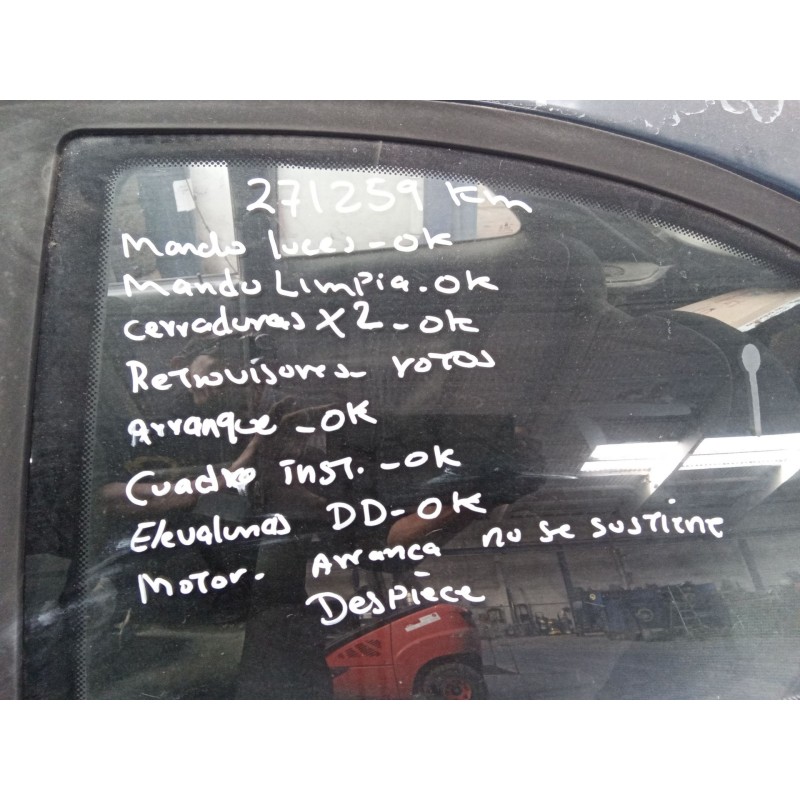 271259 km
Mando luces - OK
Mando Limpia. OK
Cerraduras X2 - OK
Retrovisores - rotos
Arranque - OK
Cuadro inst. - OK
Elevalunas DD - OK
Motor. Arranca no se sustiene
Despiece